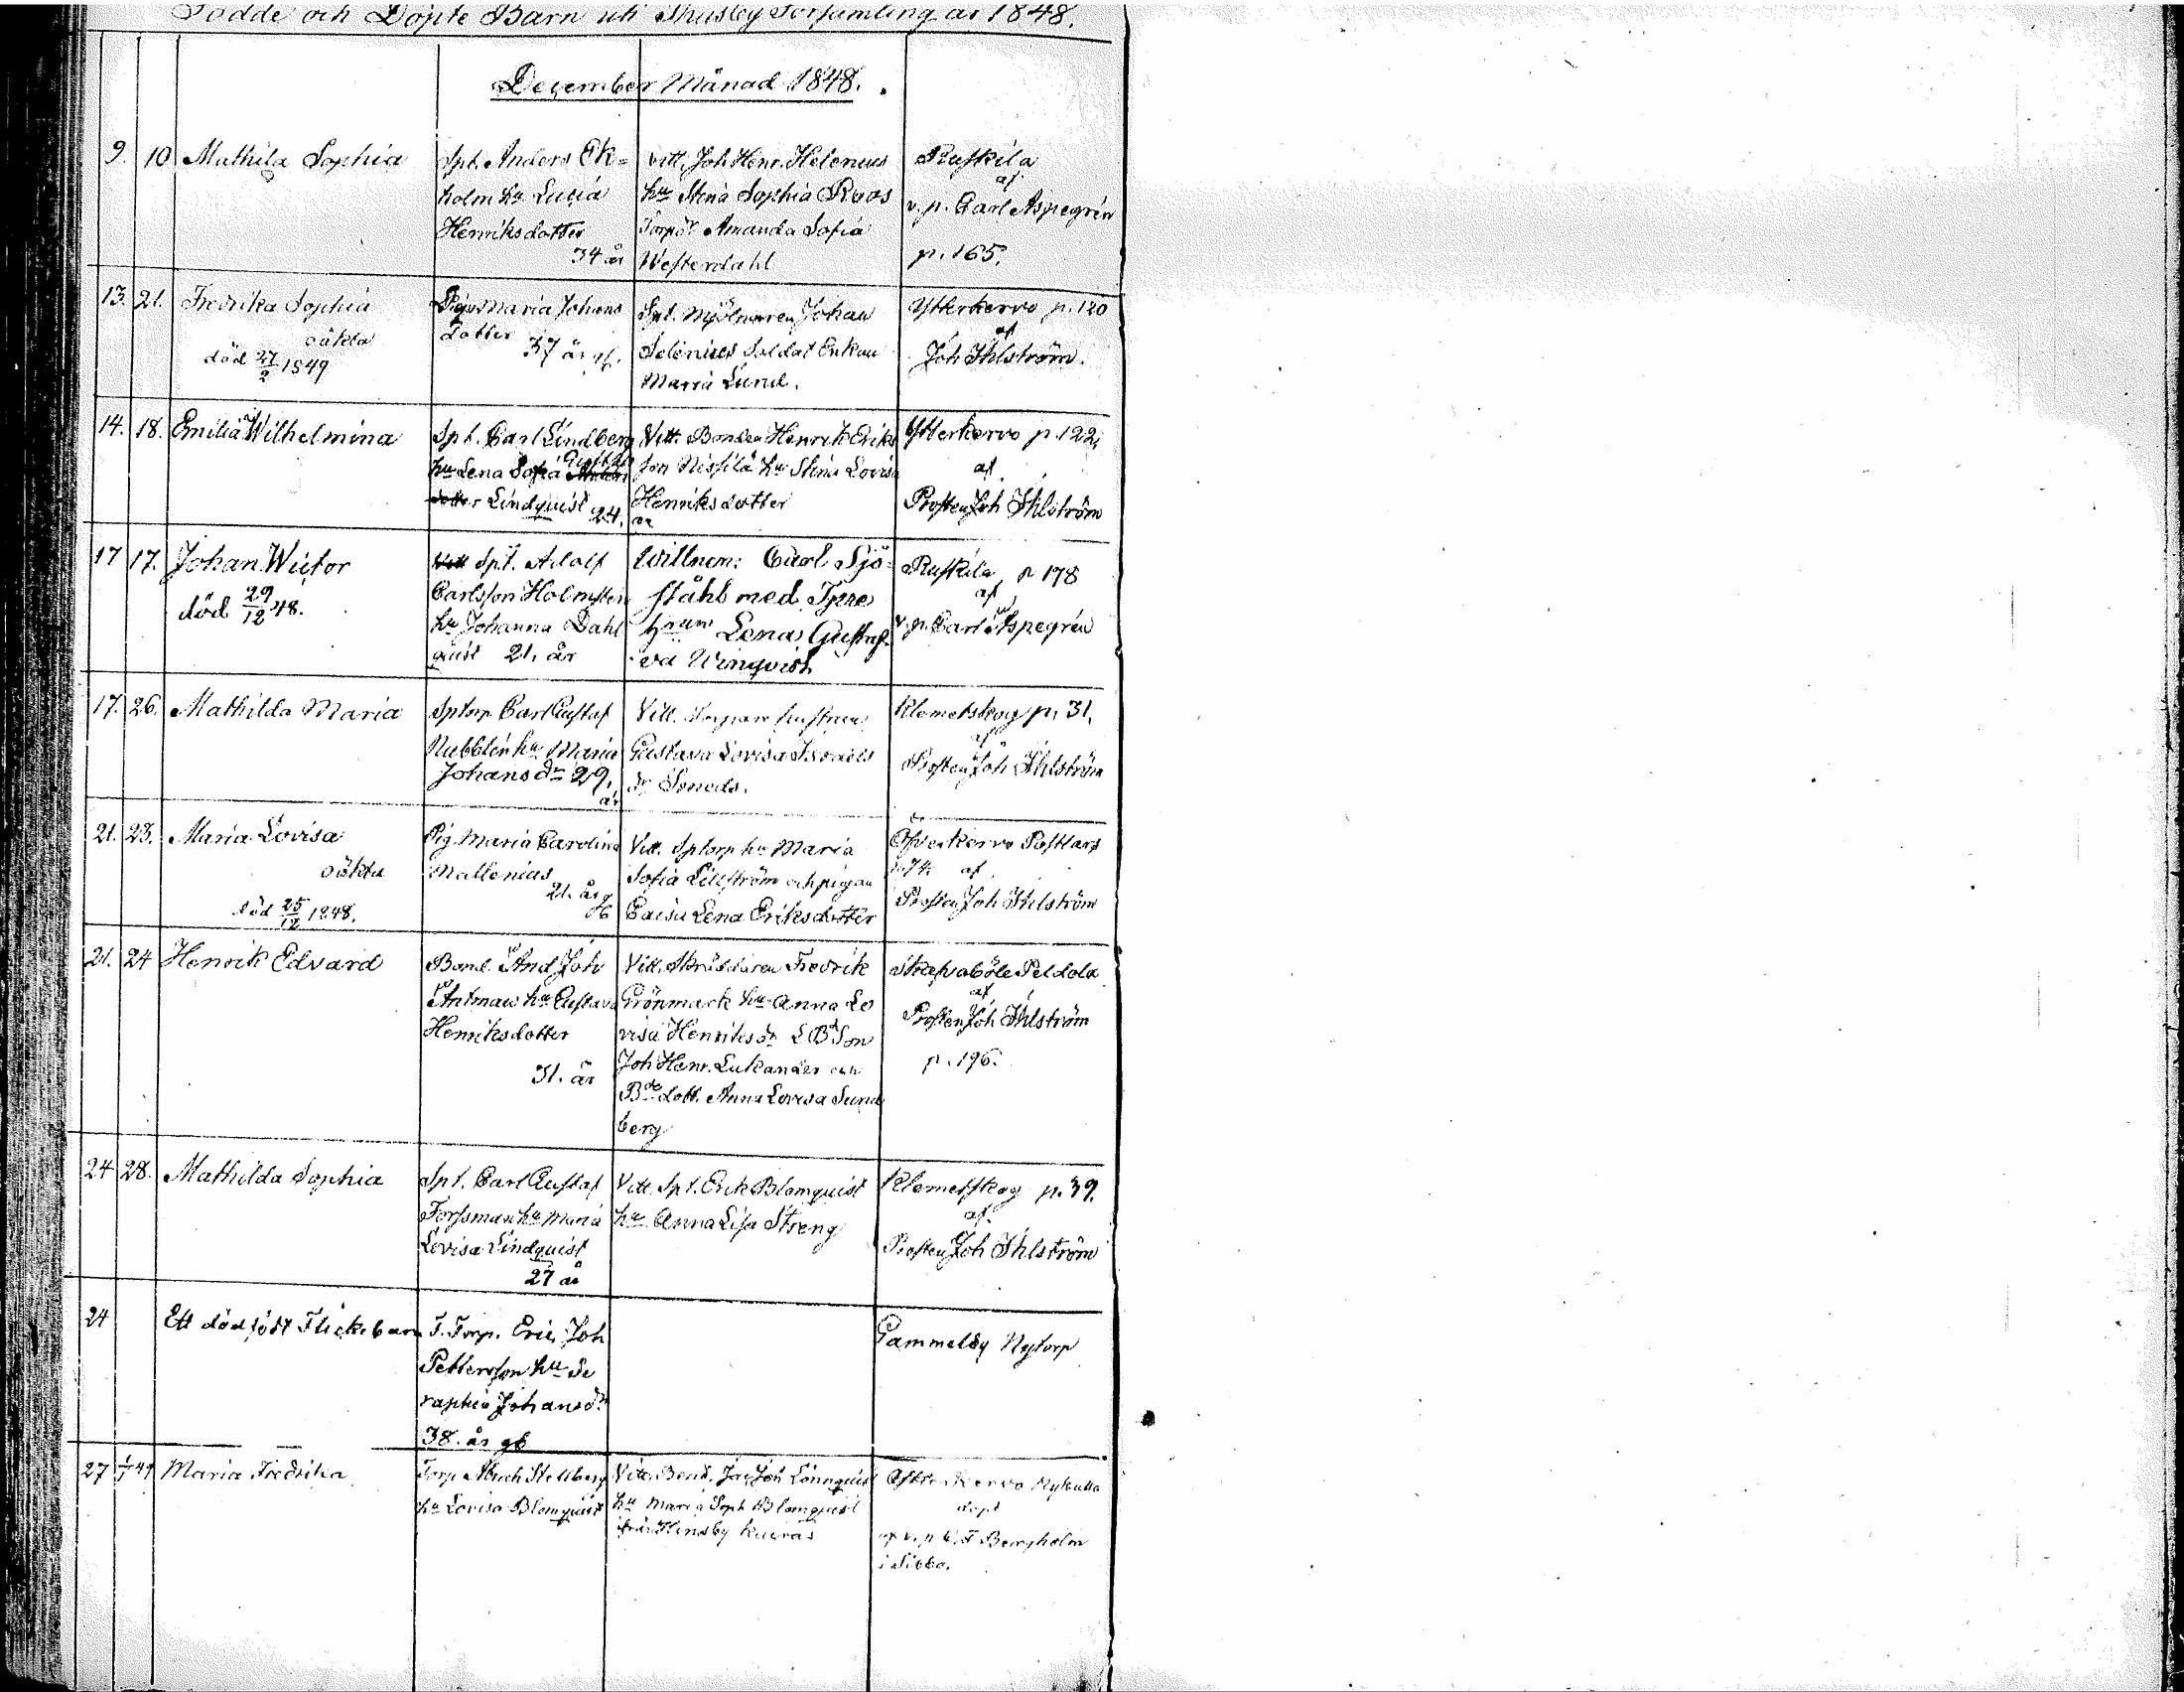 Födde och Döpte Barn uti Thusby Församling år 1848.
December Månad 1848.
9. 10. Mathilda Sophia
Spt. Anders Ek=
holm hu Lucia
Henriksdotter
34 år
Vitt. Joh Henr. Helenius
hu Stina Sophia Roos
Torpdr Amanda Sofia
Westerdahl
Ruskila
af
v. p. Carl Aspegrén
p. 165.
13. 21. Fredrika Sophia
oäkta
död 27/2 1849
Pigo Maria Johans
dotter
37 år gf.
Spt. Mjölnaren Johan
Selenius Soldat Enkan
Maria Lund.
Ytterkervo p. 120
af
Joh Ihlström.
14. 18. Emilia Wilhelmina
Spt. Carl Lindberg
hu Lena Sofia Gustafs
dotter Lindquist 24.
år
Vitt. Bonden Henrik Eriks
son Nissilä hu Stina Lovisa
Henriksdotter
Ytterkervo p. 122.
af
Prosten Joh Ihlström
17 17. Johan Wictor
död 29/12 48.
Vitt Spt. Adolf
Carlsson Holmsten
hu Johanna Dahl
quist 21. år
Wittnen: Carl Sjö-
ståhl med
Lena Gustaf-
va Winqvist
Ruskila p 178
af
v. p. Carl Aspegrén
17. 26. Mathilda Maria
Sptorp Carl Gustaf
Nubblin hu Maria
Johansdr 29.
år
Vitt. Torpare hustrun
Gustava Lovisa Israels
dr Smeds.
Klemetskog p. 31.
af
Prosten Joh Ihlström
21. 23. Maria Lovisa
oäkta
död 25/12 1848.
Pig. Maria Carolina
Mallenius
21. år gf
Vitt. Sptorp hu Maria
Sofia Lillström och pigan
Caisa Lena Eriksdotter
Öfverkervo Postlars
p. 74. af
Prosten Joh Ihlström
21. 24 Henrik Edvard
Bond. And Joh
Antman hu Gustava
Henriksdotter
31. år
Vitt. Skräddaren Fredrik
Grönmark hu Anna Lo
visa Henriksdr & Bd Son
Joh Henr. Lukander och
Bde dott. Anna Lovisa Sund
berg
Skafvaböle Peldola
af
Prosten Joh Ihlström
p. 196.
24 28. Mathilda Sophia
Spt. Carl Gustaf
Forssman hu Maria
Lovisa Lindquist
27 år
Vitt. Spt. Erik Blomquist
hu Anna Lisa Streng
Klemetskog p. 39.
af
Prosten Joh Ihlström
24 Ett dödfödt Flickebarn
F. Torp. Eric Joh
Pettersson hu Se
raphia Johansdr
38. år gf
Gammelby Nytorp
27 1/1 49 Maria Fredrika
Torp Mich Stellberg
hu Lovisa Blomquist
Vitt. Bond. Jac Joh Lönnquist
hu Maria Soph Blomquist
från Hinsby
Öfverkervo Nykulla
döpt
af v. p. C. F Bergholm
i Sibbo.